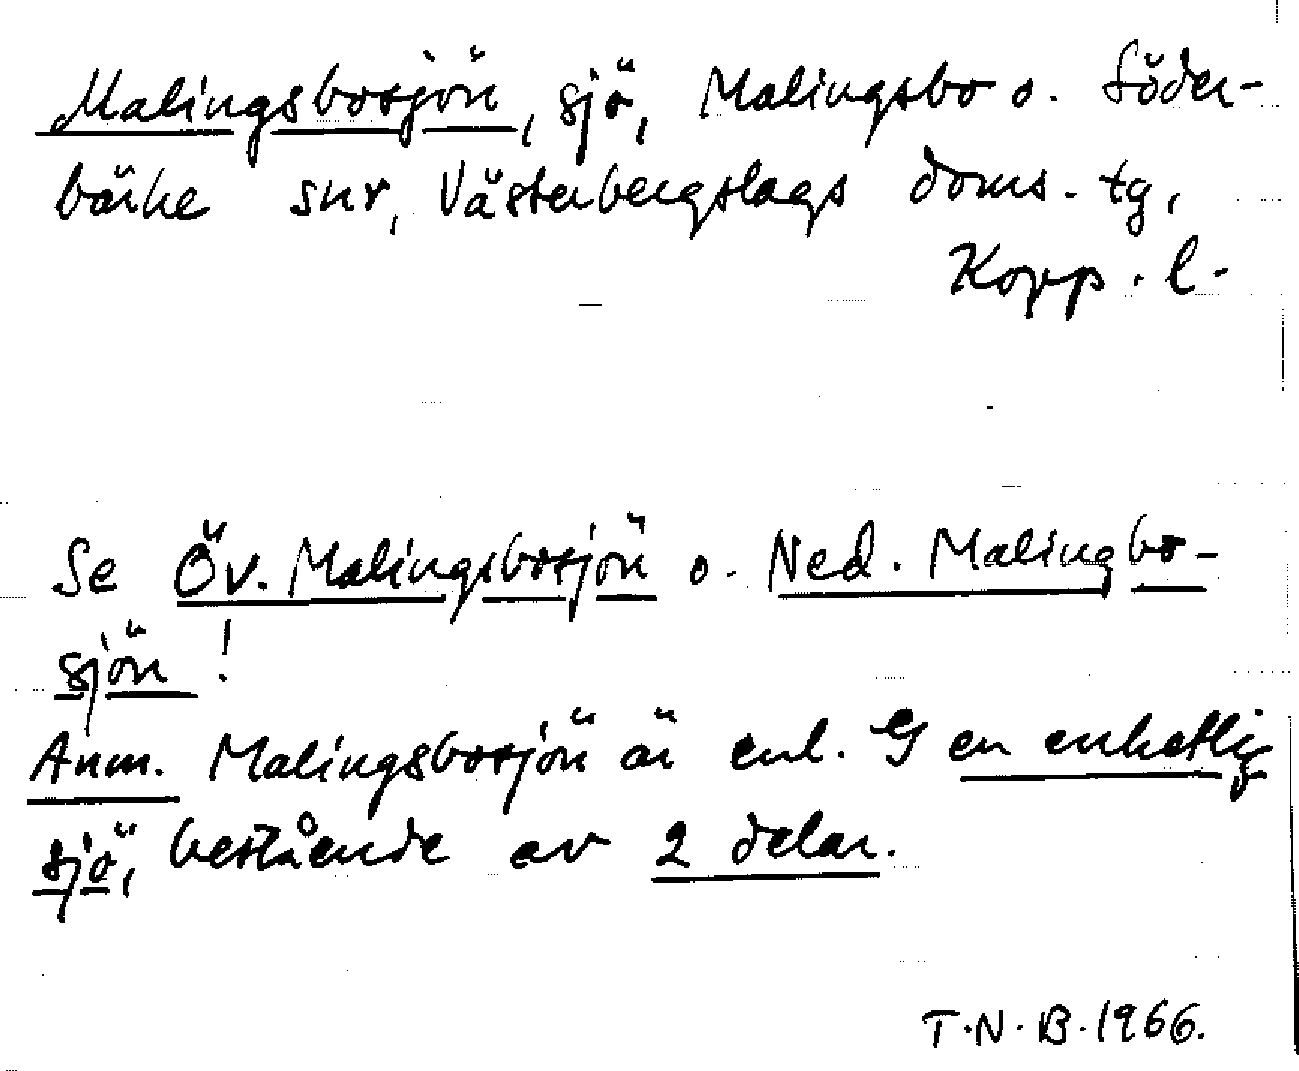 Malingsbosjön, sjö, Malingsbo o. Söder-
bärke snr, Västerbergslags doms. tg,
Kopp. l.
Se Öv. Malingsbosjön o. Ned. Malingbo-
sjön !
Anm. Malingsbosjön är enl. G en enhetlig
sjö, bestående av 2 delar.
T.N.B.1966.